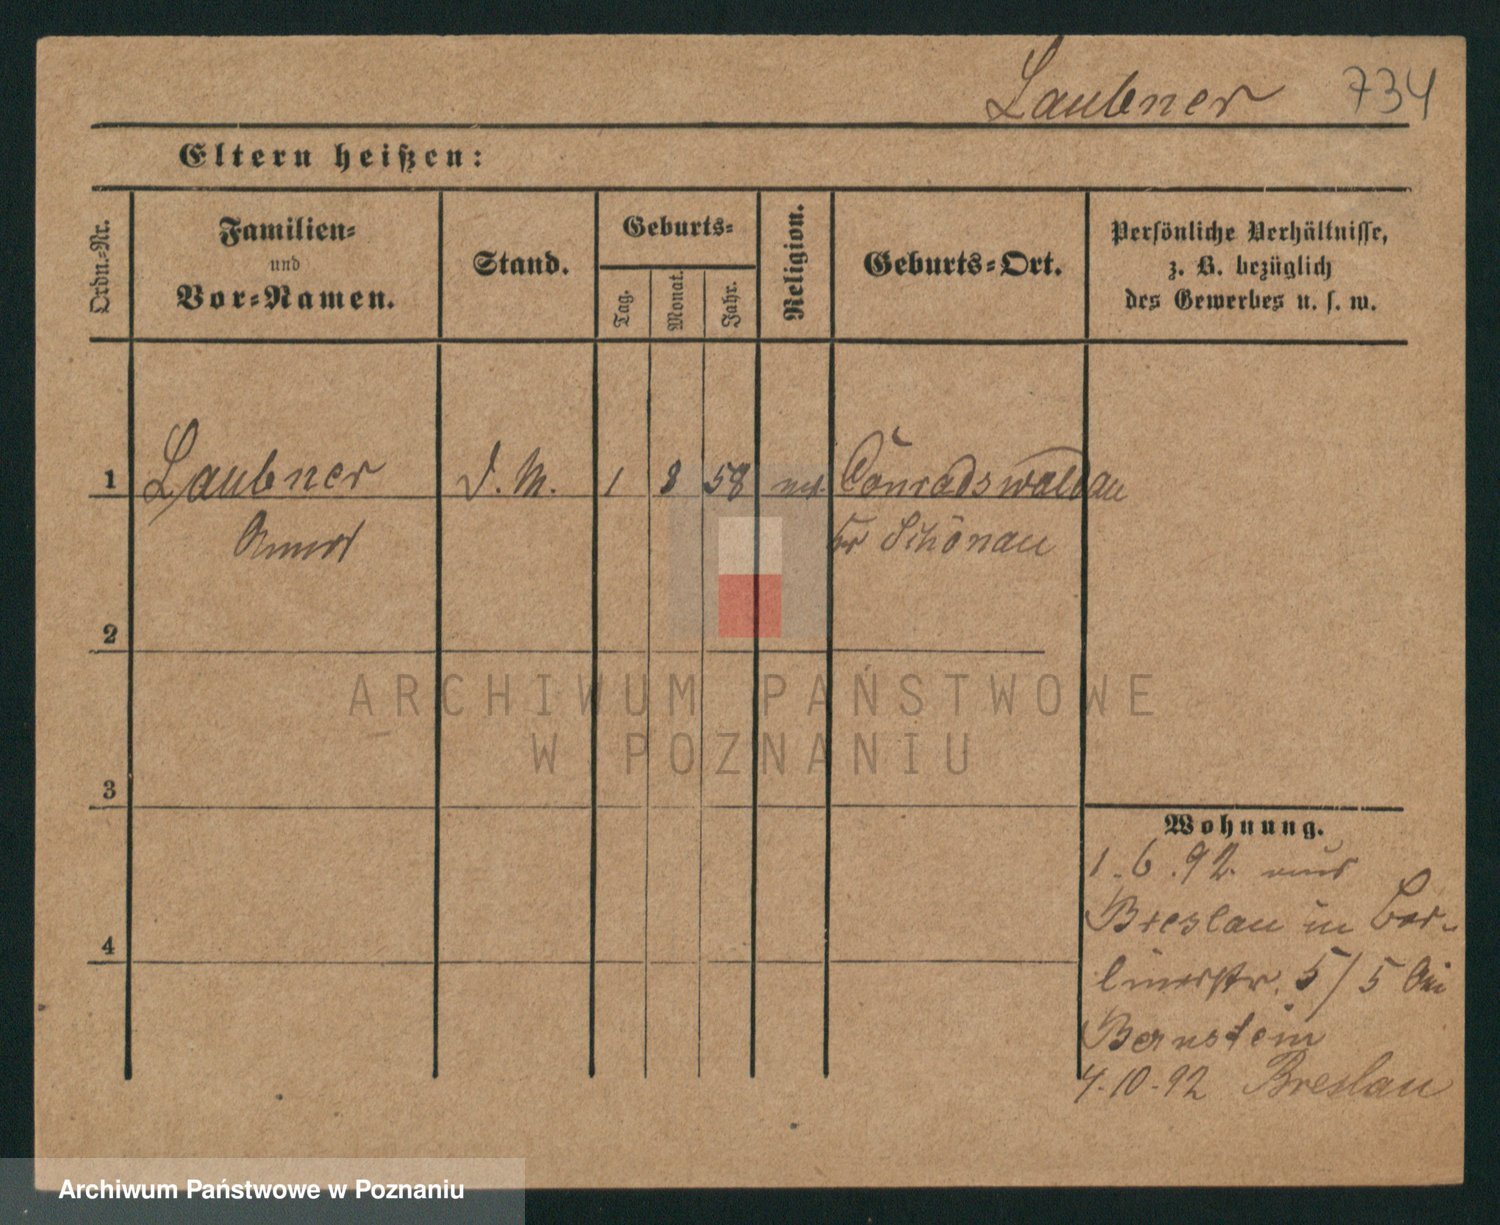 Laubner 734
Eltern heißen:
Ordn.-Nr.
Familien-
und
Vor-Namen.
Stand.
Geburts-
Tag.
Monat.
Jahr.
Religion.
Geburts-Ort.
Persönliche Verhältnisse,
z. B. bezüglich
des Gewerbes u. s. w.
1 Laubner D. M. 1 8 58 Conradswaldau
Schönau
2
ARCHIWUM PAŃSTWOWE
W POZNANIU
3
Wohnung.
1.6.92. aus
Breslau in Ber-
linerstr. 5/5 bei
4
Bernstein
4.10.92 Breslau
Archiwum Państwowe w Poznaniu